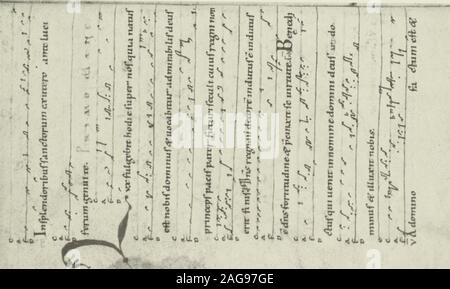 Insplendoribus sanctorum exutero ante luci
ferum genui te.
ux fulgebit hodie super nos quia natus
est nobis dominus & uocabitur admirabilis deus
princeps pacis pater futuri seculi cuius regni non
erit finis. dñs regnauit decorē indutus ē indutus
ē dñs fortitudinē & precinxit se uirtute. Benedi
ctus qui uenit in nomine domini deus. do
minus & illuxit nobis.
A domino fa ctum est &
alamy
2AG97GE